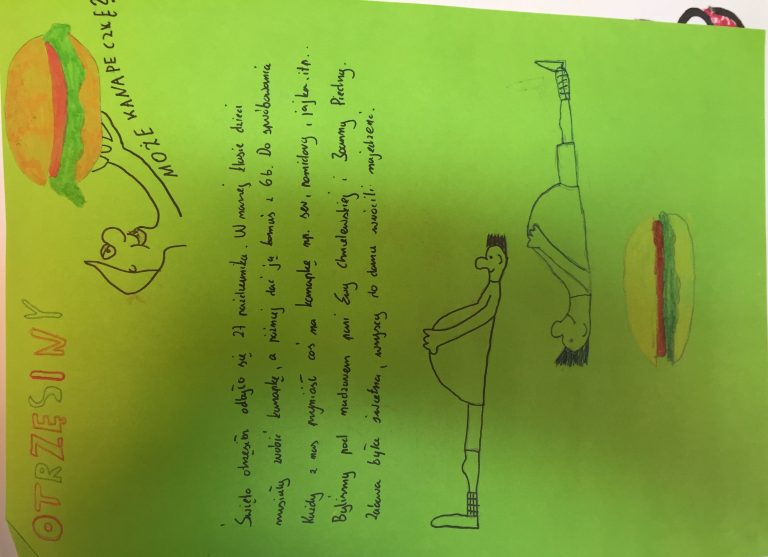 OTRZĘSINY
MOŻE KANAPECZKĘ?
Święto otrzęsin odbyło się 27 października. W naszej klasie dzieci
musiały zrobić kanapkę, a później dać ją komuś z 6b. Do spróbowania
Każdy z nas przyniósł coś na kanapkę np. ser, pomidory, jajka itp...
Byliśmy pod nadzorem pani Ewy Chmielewskiej i Joanny
Zabawa była świetna, wszyscy do domu wrócili najedzeni.